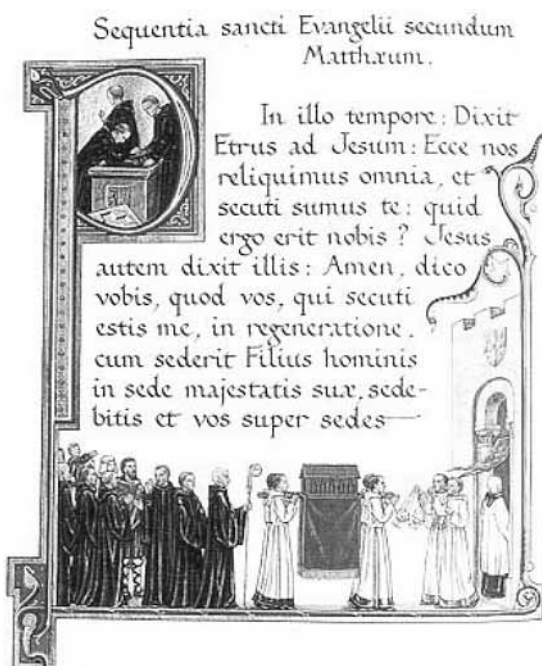 Sequentia sancti Evangelii secundum
Matthæum.
In illo tempore: Dixit
PEtrus ad Jesum: Ecce nos
reliquimus omnia, et
secuti sumus te: quid
ergo erit nobis? Jesus
autem dixit illis: Amen, dico
vobis, quod vos, qui secuti
estis me, in regeneratione,
cum sederit Filius hominis
in sede majestatis suæ, sede-
bitis et vos super sedes